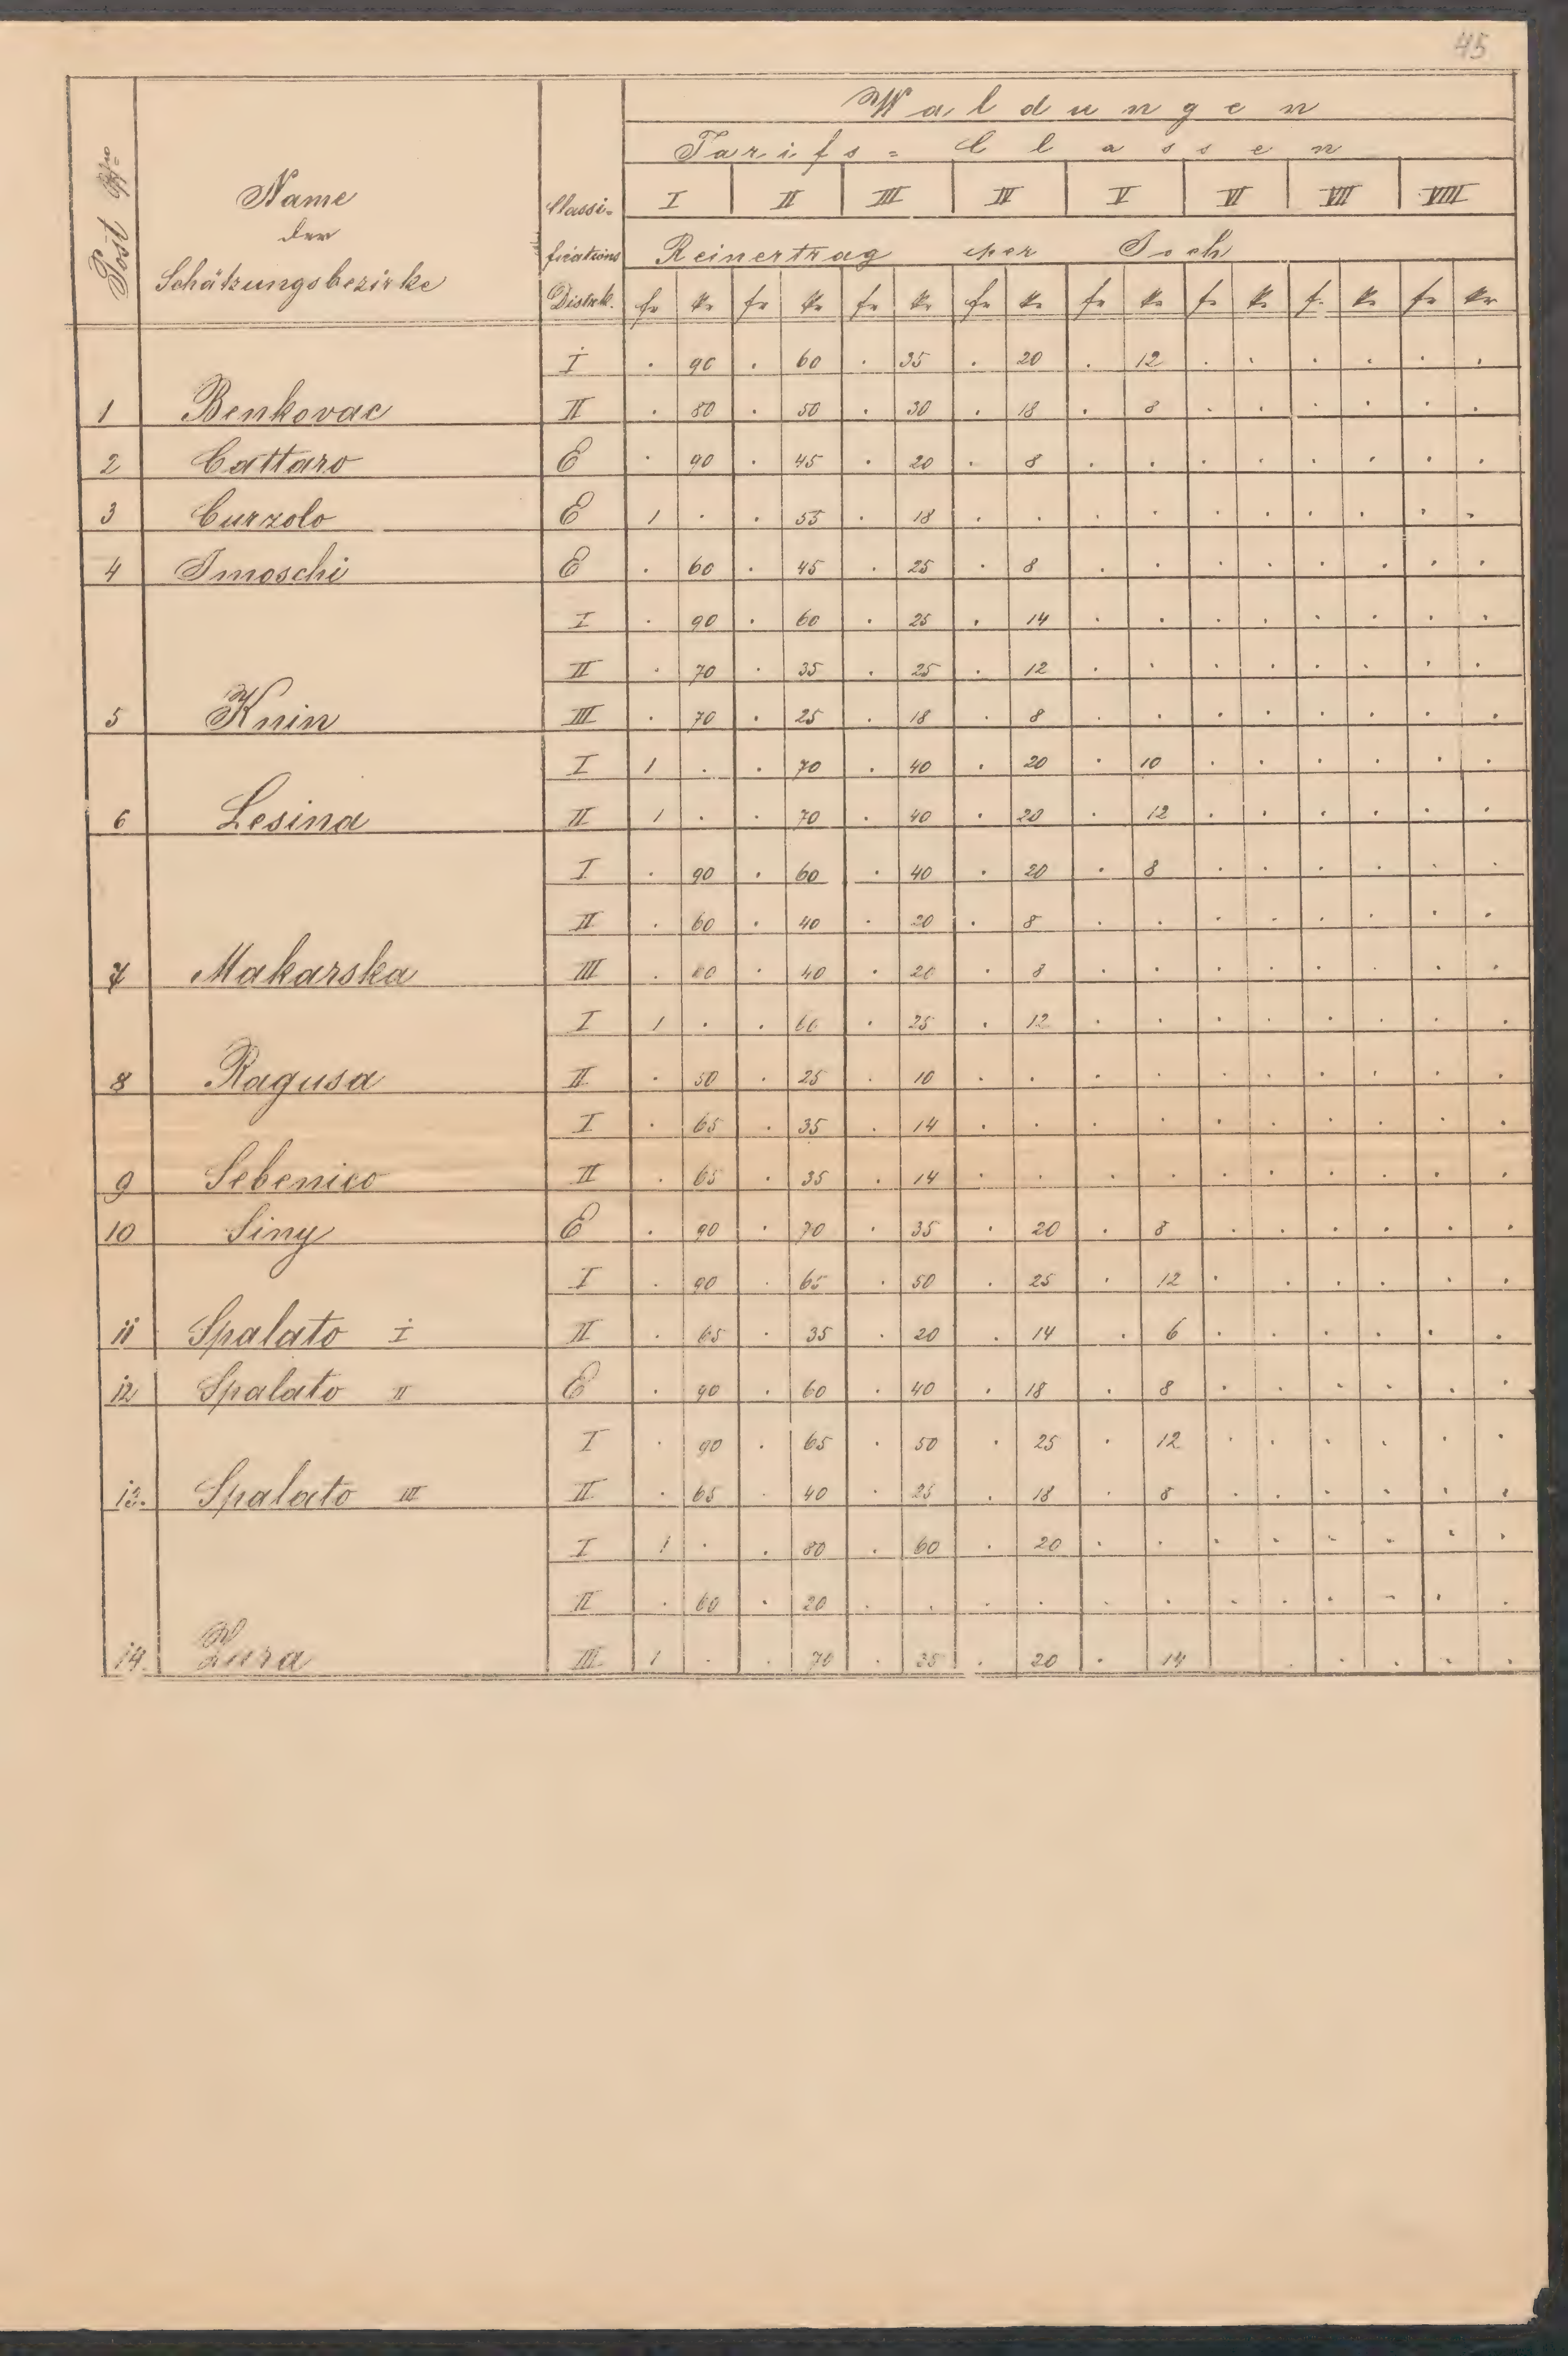 45
Waldungen
Tarifs = Classen
Post Nro
Name
der
Schätzungsbezirke
Classi-
fications
Distrk.
I II III IV V VI VII VIII
Reinertrag per Joch
fr kr fr kr fr kr fr kr fr kr fr kr fr kr fr kr
I . 90 . 60 . 35 . 20 . 12 . . . . . .
1 Benkovac II . 80 . 50 . 30 . 18 . 8 . . . . . .
2 Cattaro E . 90 . 45 . 20 . 8 . . . . . . . .
3 Curzolo E 1 . . 55 . 18 . . . . . . . . . .
4 Imoschi E . 60 . 45 . 25 . 8 . . . . . . . .
I . 90 . 60 . 25 . 14 . . . . . . . .
II . 70 . 35 . 25 . 12 . . . . . . . .
5 Knin III . 70 . 25 . 18 . 8 . . . . . . . .
I 1 . . 70 . 40 . 20 . 10 . . . . . .
6 Lesina II 1 . . 70 . 40 . 20 . 12 . . . . . .
I . 90 . 60 . 40 . 20 . 8 . . . . . .
II . 60 . 40 . 20 . 8 . . . . . . . .
7 Makarska III . 60 . 40 . 20 . 8 . . . . . . . .
I 1 . . 60 . 25 . 12 . . . . . . . .
8 Ragusa II . 50 . 25 . 10 . . . . . . . . . .
I . 65 . 35 . 14 . . . . . . . . . .
9 Sebenico II . 65 . 35 . 14 . . . . . . . . . .
10 Siny E . 90 . 70 . 35 . 20 . 8 . . . . . .
I . 90 . 65 . 50 . 25 . 12 . . . . . .
11 Spalato I II . 65 . 35 . 20 . 14 . 6 . . . . . .
12 Spalato II E . 90 . 60 . 40 . 18 . 8 . . . . . .
I . 90 . 65 . 50 . 25 . 12 . . . . . .
13. Spalato III II . 65 . 40 . 25 . 18 . 8 . . . . . .
I 1 . . 80 . 60 . 20 . . . . . . . .
II . 60 . 20 . . . . . . . . . . . .
14. Zara III 1 . . 70 . 35 . 20 . 14 . . . . .